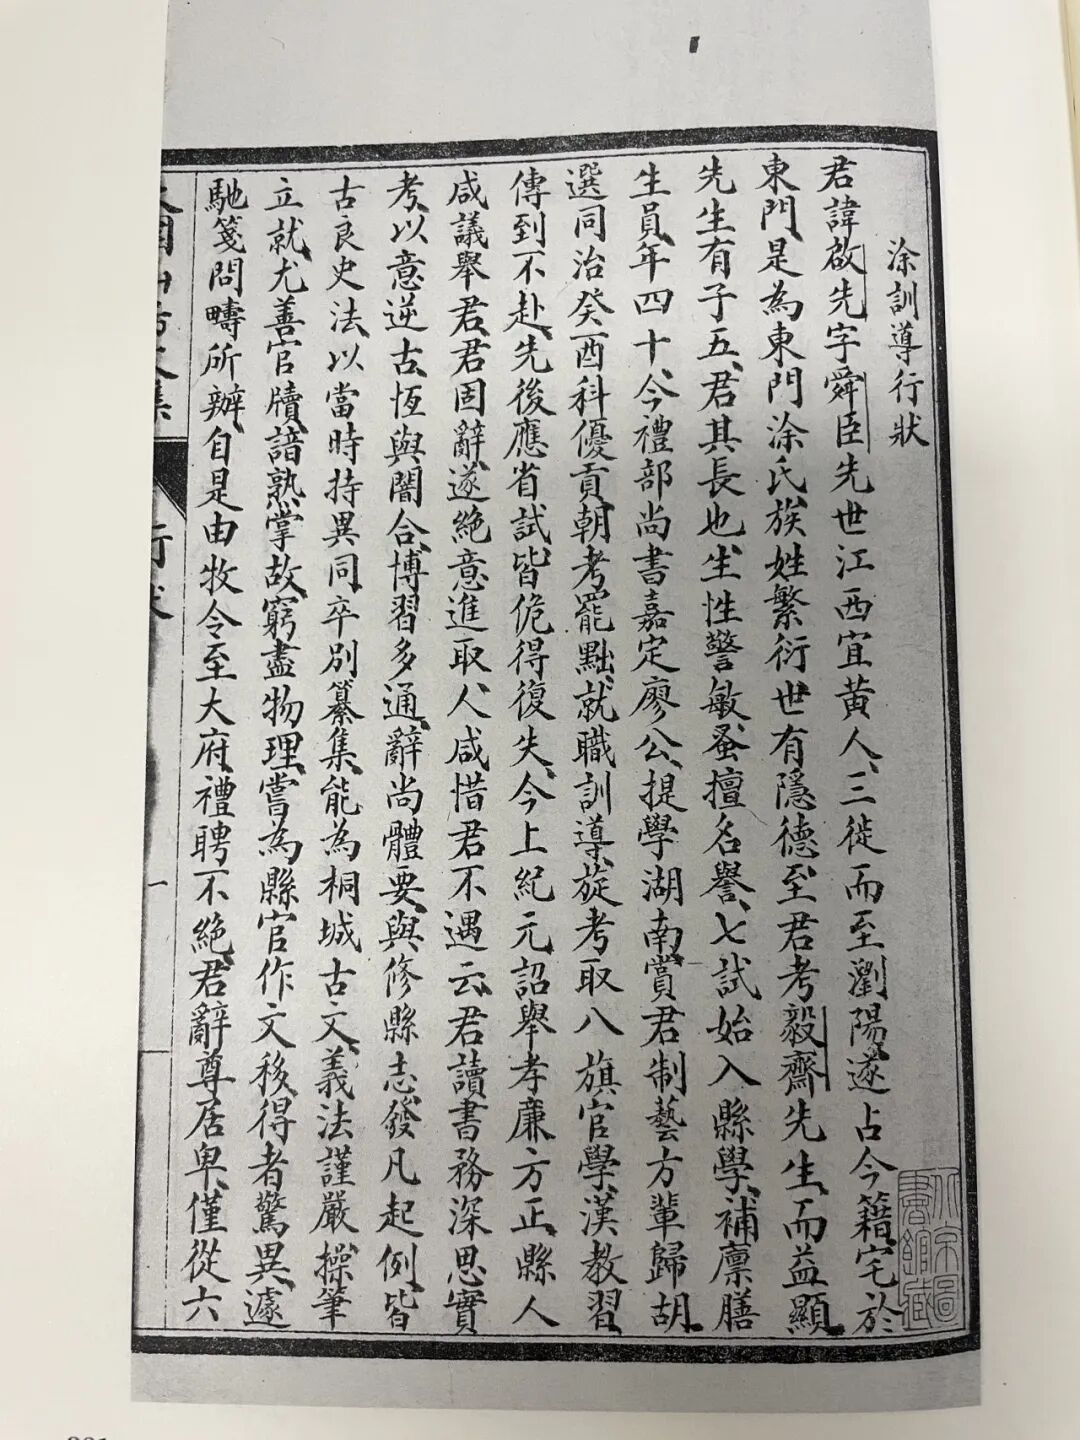 涂訓導行狀
君諱啟先字舜臣先世江西宜黃人三徙而至瀏陽遂占今籍宅於
東門是為東門涂氏族姓繁衍世有隱德至君考毅齋先生而益顯
先生有子五君其長也生性警敏蚤擅名譽七試始入縣學補廩膳
生員年四十今禮部尚書嘉定廖公提學湖南賞君制藝方輩歸胡
選同治癸酉科優貢朝考罷黜就職訓導旋考取八旗官學漢教習
傳到不赴先後應省試皆佹得復失今上紀元詔舉孝廉方正縣人
咸議舉君君固辭遂絶意進取人咸惜君不遇云君讀書務深思實
考以意逆古恆與闇合博習多通辭尚體要與修縣志發凡起例皆
古良史法以當時持異同卒別纂集能為桐城古文義法謹嚴操筆
立就尤善官牘諳熟掌故窮盡物理嘗為縣官作文移得者驚異遽
馳箋問疇所辦自是由牧令至大府禮聘不絶君辭尊居卑僅從六
行狀
一